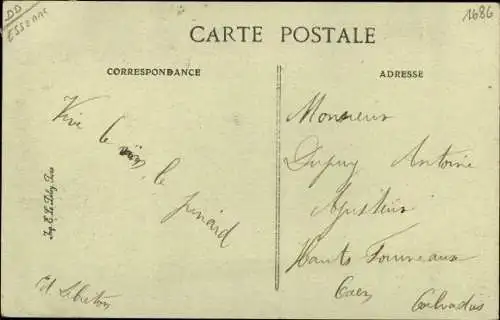 DD
ESSONNE
1686
CARTE POSTALE
CORRESPONDANCE
ADRESSE
Vive le
vin, le
pinard
Ed. Lebreton
Monsieur
Dupuy Antoine
Ajusteur
Hauts Fourneaux
Caen
Calvados
Imp. E. Le Deley, Paris